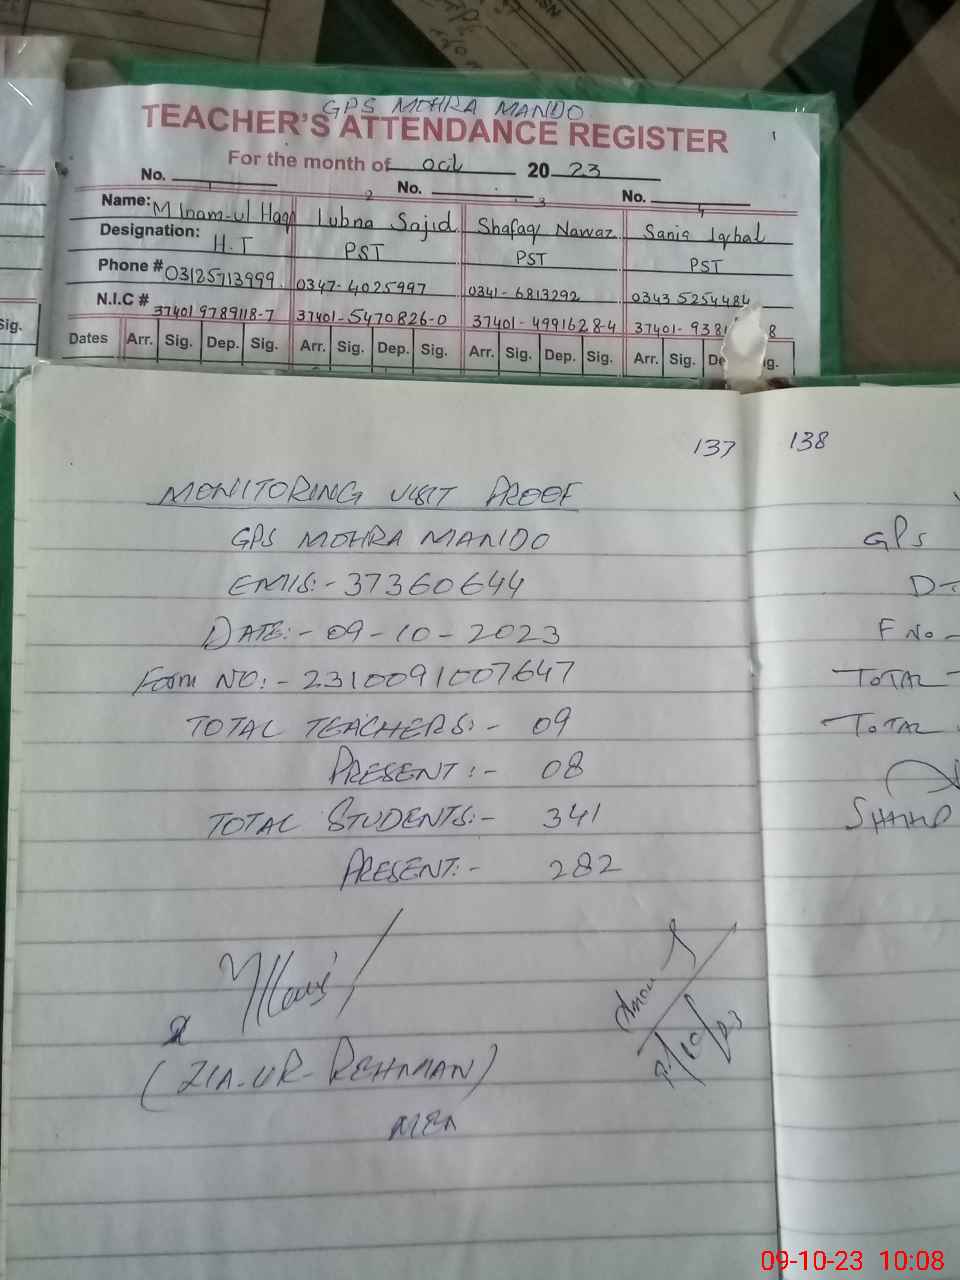 GPS MOHRA MANDO
TEACHER'S ATTENDANCE REGISTER
For the month of Oct 2023
No. 1 2 No. 3 No. 4
Name: M Inam-ul Haq Lubna Sajid Shafaq Nawaz Sania Iqbal
Designation: H.T PST PST PST
Phone # 03125713999 0347-4025997 0341-6813292 0343 5254484
N.I.C # 37401 9789118-7 37401-5470826-0 37401-4991628-4 37401-938 8
Sig.
Dates Arr. Sig. Dep. Sig. Arr. Sig. Dep. Sig. Arr. Sig. Dep. Sig. Arr. Sig. De ig.
137
MONITORING VISIT PROOF
GPS MOHRA MANDO
EMIS:- 37360644
DATE:- 09-10-2023
Form NO:- 2310091007647
TOTAL TEACHERS:- 09
PRESENT:- 08
TOTAL STUDENTS:- 341
PRESENT:- 282
(ZIA-UR-REHMAN)
MEA
138
GPS
D
F No-
TOTAL
TOTAL
09-10-23 10:08